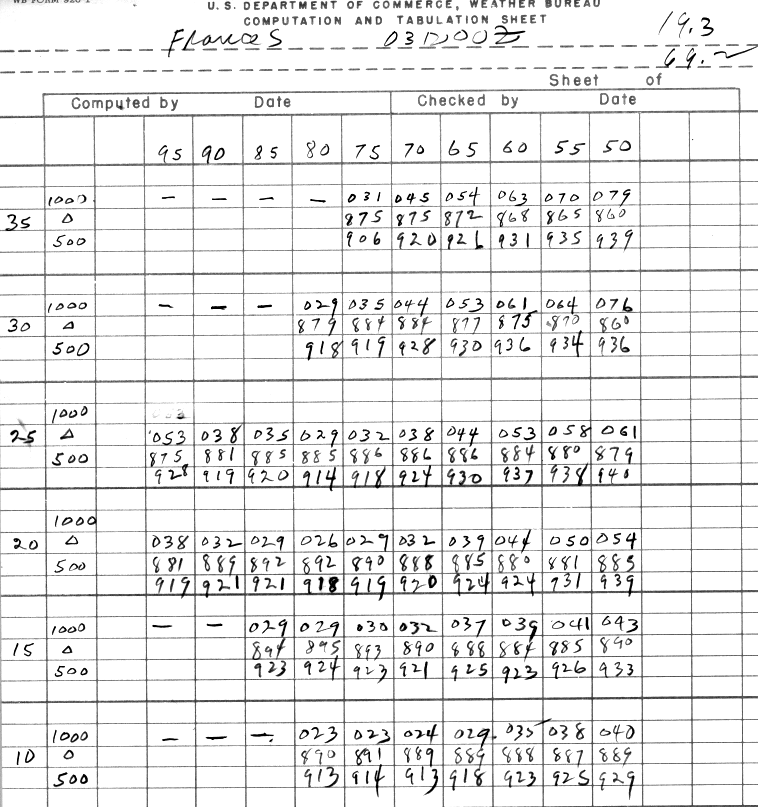 WB FORM 920-1
U. S. DEPARTMENT OF COMMERCE, WEATHER BUREAU
COMPUTATION AND TABULATION SHEET
19.3
Frances 031200Z
69.2
Sheet of
Computed by Date Checked by Date
95 90 85 80 75 70 65 60 55 50
1000 — — — — 031 045 054 063 070 079
35 Δ 875 875 872 868 865 860
500 906 920 926 931 935 939
1000 — — — 029 035 044 053 061 064 076
30 Δ 879 884 884 877 875 870 860
500 918 919 928 930 936 934 936
1000
25 Δ 053 038 035 029 032 038 044 053 058 061
500 875 881 885 885 886 886 886 884 880 879
928 919 920 914 918 924 930 937 938 940
1000
20 Δ 038 032 029 026 029 032 039 044 050 054
500 881 889 892 892 890 888 885 880 881 885
919 921 921 918 919 920 924 924 931 939
1000 — — 029 029 030 032 037 039 041 043
15 Δ 894 895 893 890 888 884 885 890
500 923 924 923 921 925 923 926 933
1000 — — — 023 023 024 029 035 038 040
10 Δ 890 891 889 889 888 887 889
500 913 914 913 918 923 925 929